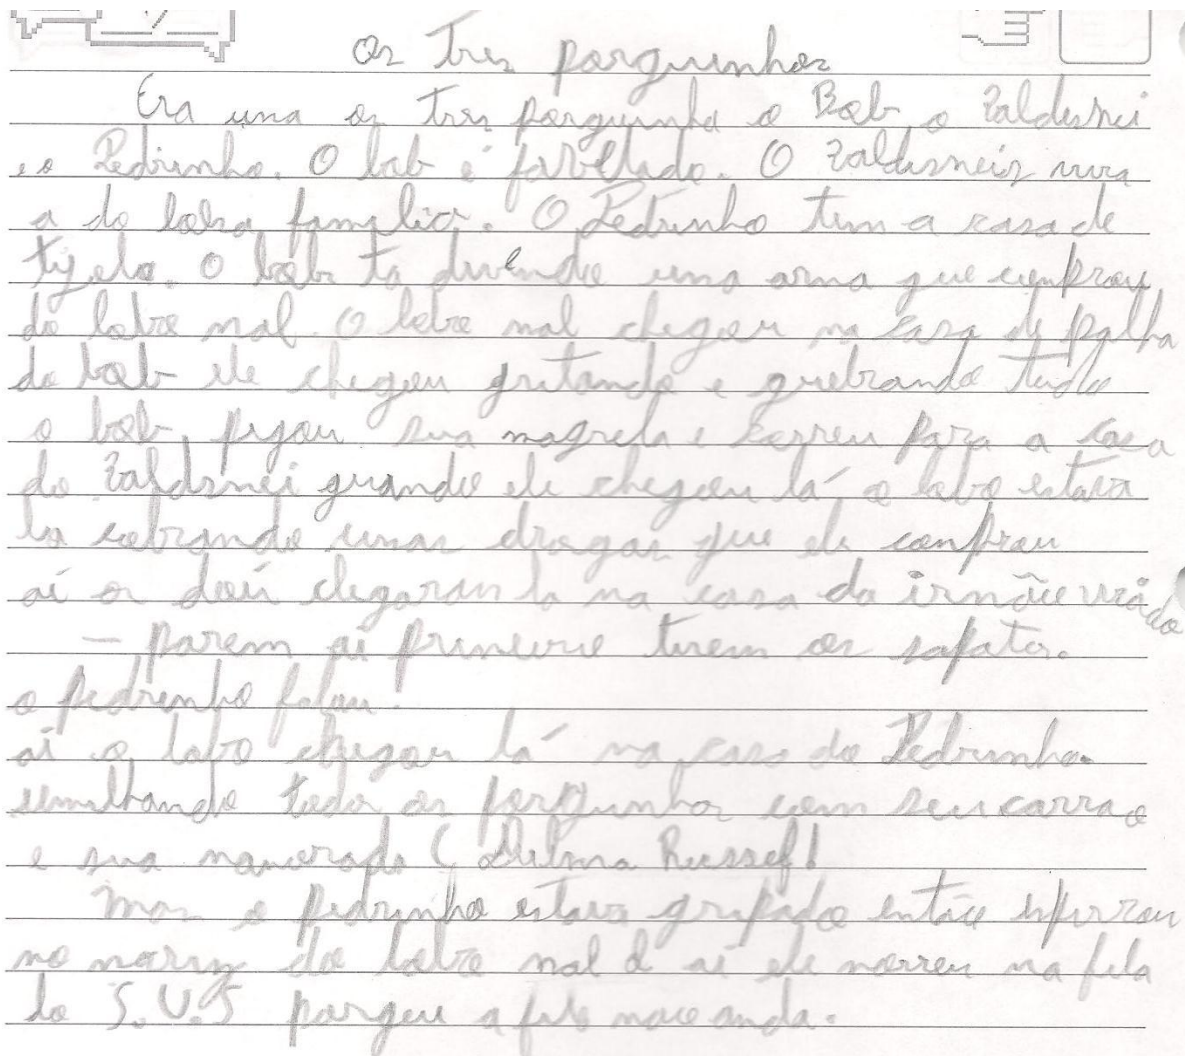 Os Tres porguinhos
Era uma os tres porguinho o Bob o Zaldisnei
e o Pedrinho. O bob é favelado. O Zaldisneis vive
a do bolsa familia. O Pedrinho tem a casa de
tijolo. O bob ta devendo uma arma que comprou
do lobo mal. O lobo mal chegou na casa de palha
do bob ele chegou gritando e quebrando tudo
o bob pegou sua magrela e correu para a casa
do Zaldisnei quando ele chegou lá o lobo estava
la cobrando umas drogas que ele comprou
aí os doú chegaram la na casa do irmão viado
– parem aí primeiro tirem os sapatos.
o pedrinho falou!
aí o lobo chegou lá na casa do Pedrinho.
umilhando todos os porguinhos com seu carrão
e sua namorada ( Dilma Russef!
mas o pedrinho estava gripado então espirrou
no nariz do lobo mal e aí ele morreu na fila
do S.U.S porque a fila não anda.